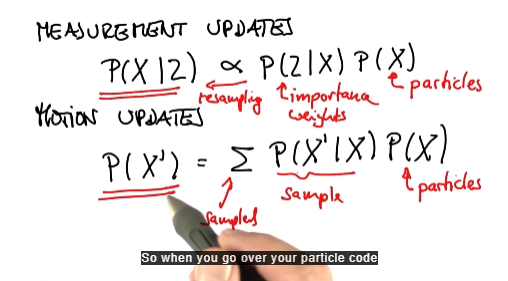 MEASUREMENT UPDATES
P(X|Z) ∝ P(Z|X) P(X)
resampling importana weights particles
MOTION UPDATES
P(X') = Σ P(X'|X) P(X)
samples sample particles
So when you go over your particle code